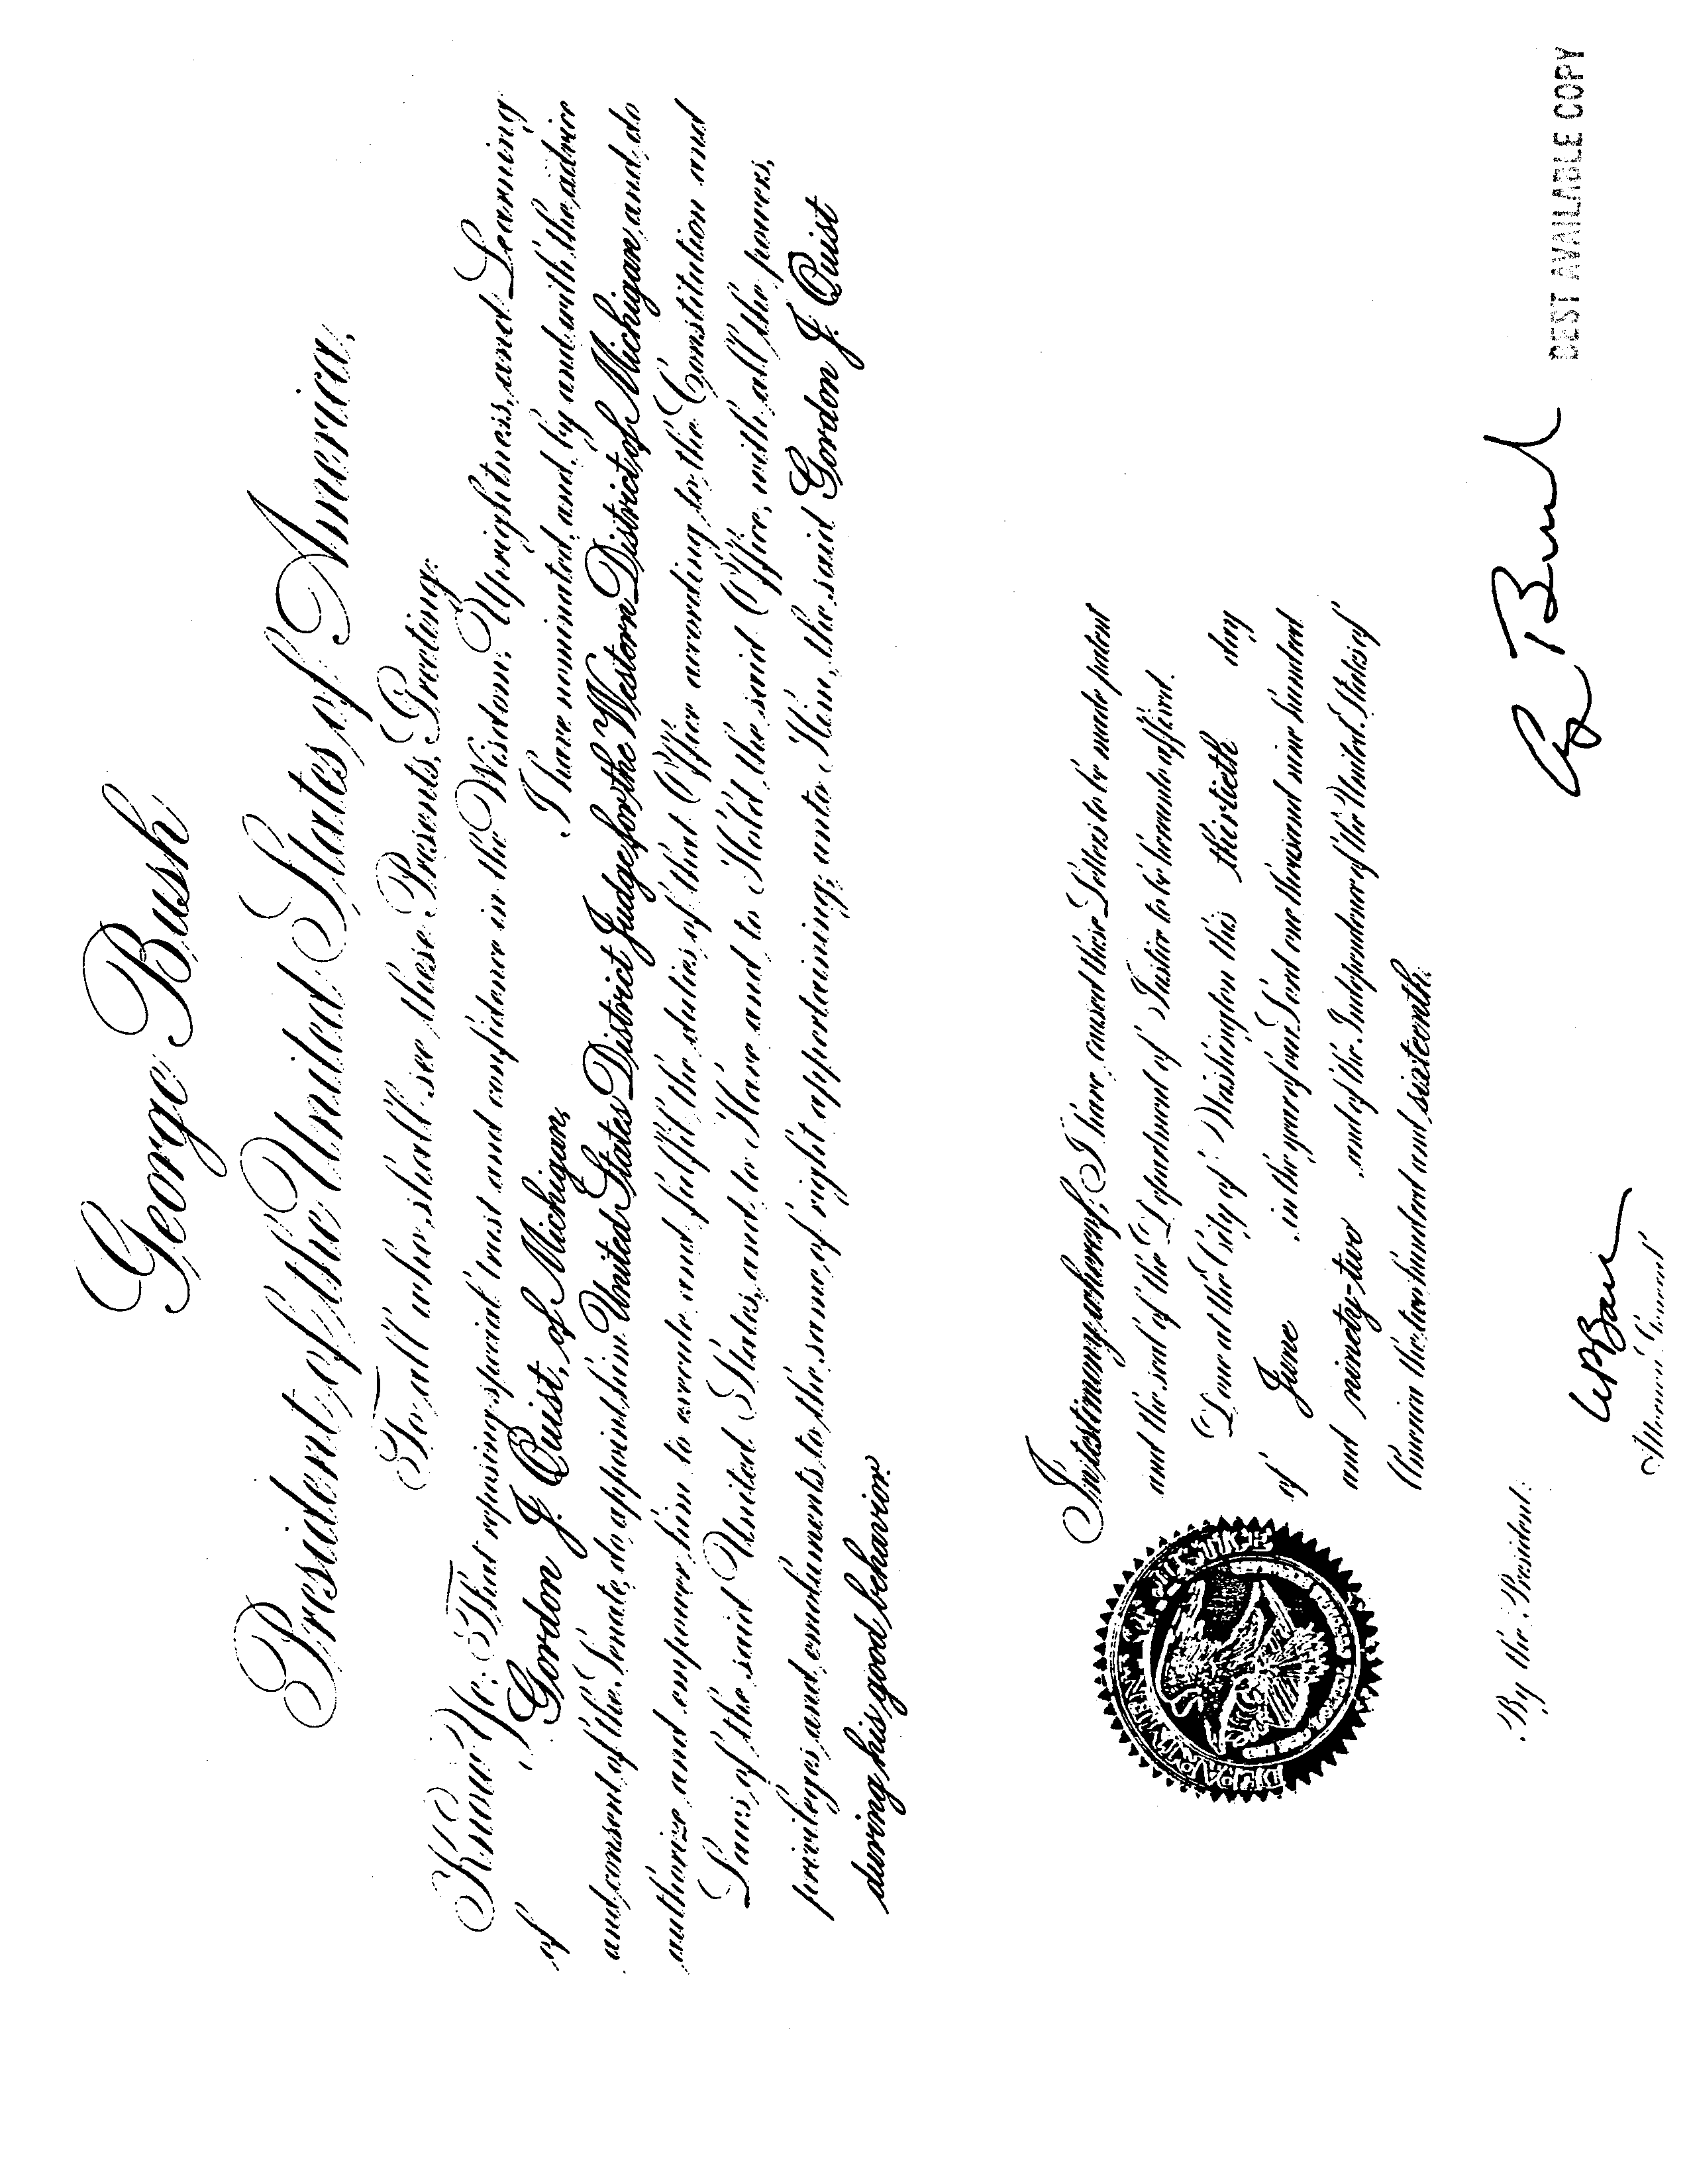 George Bush
President of the United States of America,
To all who shall see these Presents, Greeting:
Know Ye: That reposing special trust and confidence in the Wisdom, Uprightness, and Learning
of Gordon J. Quist, of Michigan, I have nominated, and, by and with the advice
and consent of the Senate, do appoint him United States District Judge for the Western District of Michigan, and do
authorize and empower him to execute and fulfil the duties of that Office according to the Constitution and
Laws of the said United States, and to Have and to Hold the said Office, with all the powers,
privileges and emoluments to the same of right appertaining, unto Him, the said Gordon J. Quist
during his good behavior.
In testimony whereof, I have caused these Letters to be made patent
and the seal of the Department of Justice to be hereunto affixed.
Done at the City of Washington this thirtieth day
of June in the year of our Lord one thousand nine hundred
and ninety-two and of the Independence of the United States of
America the two hundred and sixteenth.
DEPARTMENT OF JUSTICE
G Bush
By the President:
W P Barr
Attorney General
BEST AVAILABLE COPY